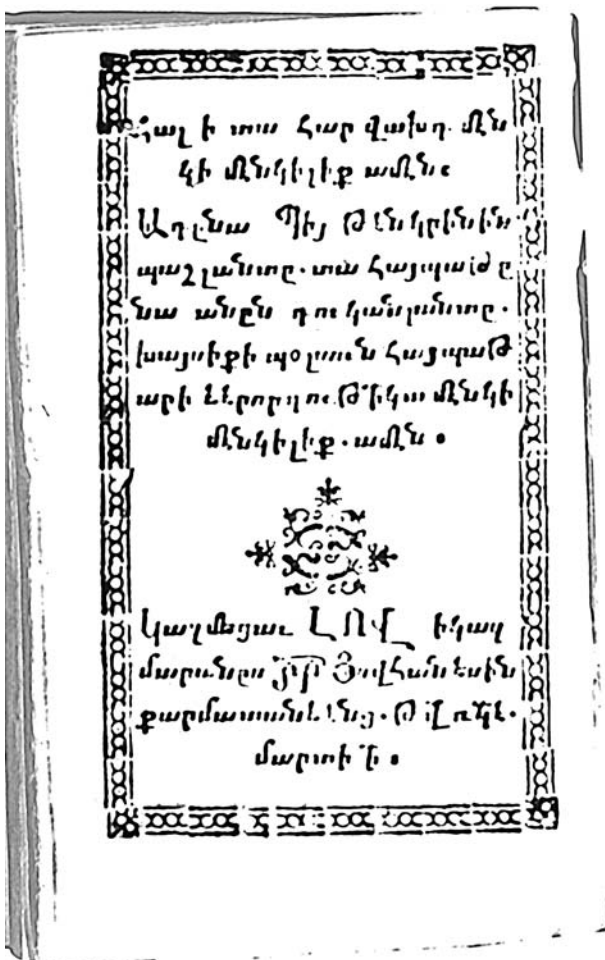 Հալ ի տա Հար վախդ. մէն
կի մէնկիլիք ամէն։
Ադընա Պիյ Թէնկրինին
պաշլանտը. տա Հայպաթը
նա անըն դուկանլանտը.
խայսիքի պօլսուն Հայպաթ
արի մէնկի
մէնկիլիք. ամէն.
Կազմեցաւ ԼՈՎ իկազ
մարանըս տր Յովհաննէսին
քարմատանէնց. Թվ. ՌԿԷ.
մարտի